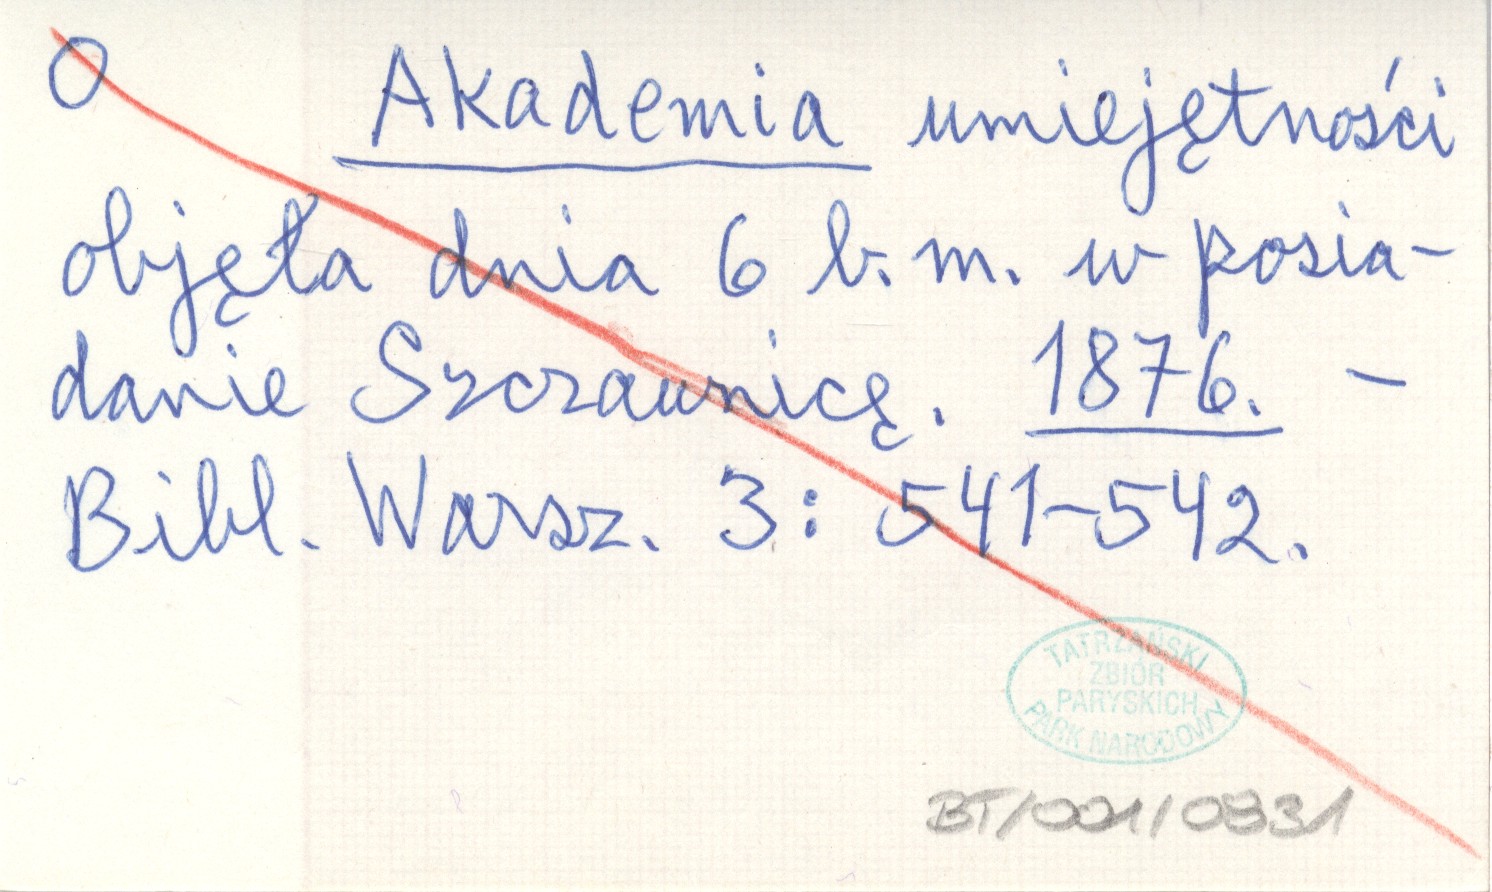 O Akademia umiejętności
objęta dnia 6 b. m. w posia-
danie Szczawnicę. 1876. -
Bibl. Warsz. 3: 541-542.
TATRZAŃSKI
ZBIÓR
PARYSKICH
PARK NARODOWY
BT/001/0831